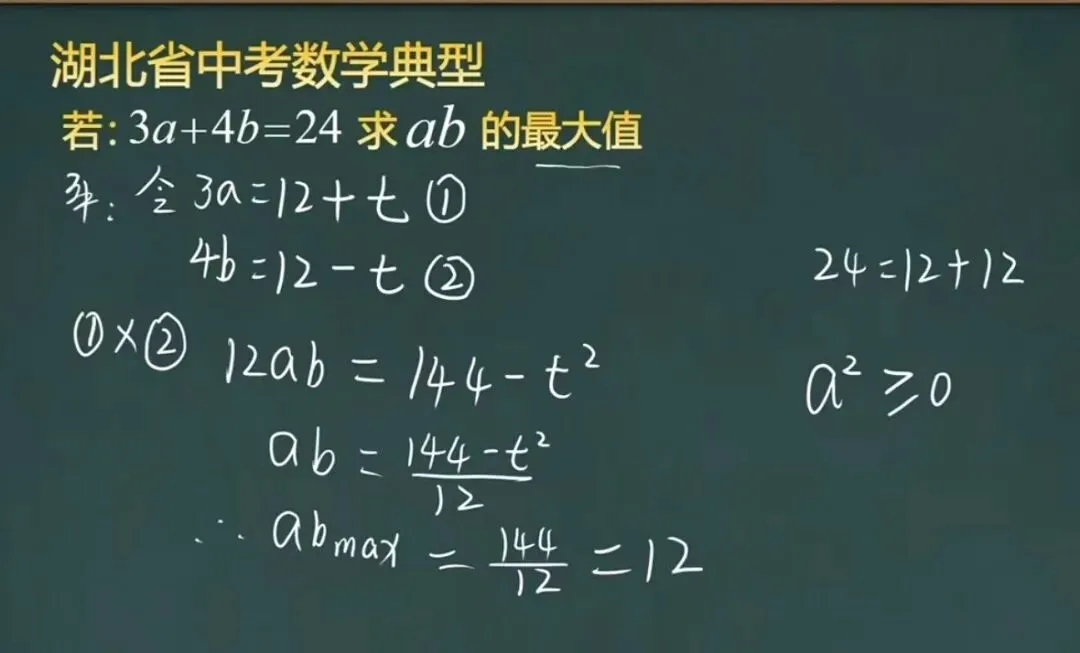 湖北省中考数学典型
若:3a+4b=24 求ab 的最大值
解:令 3a=12+t ①
4b=12-t ②
24=12+12
①×② 12ab=144-t²
a²≥0
ab=\frac{144-t²}{12}
∴ab_{max}=\frac{144}{12}=12